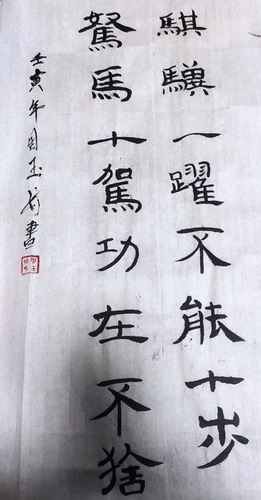 騏驥一躍不能十步
駑馬十駕功在不捨
壬寅年周玉書